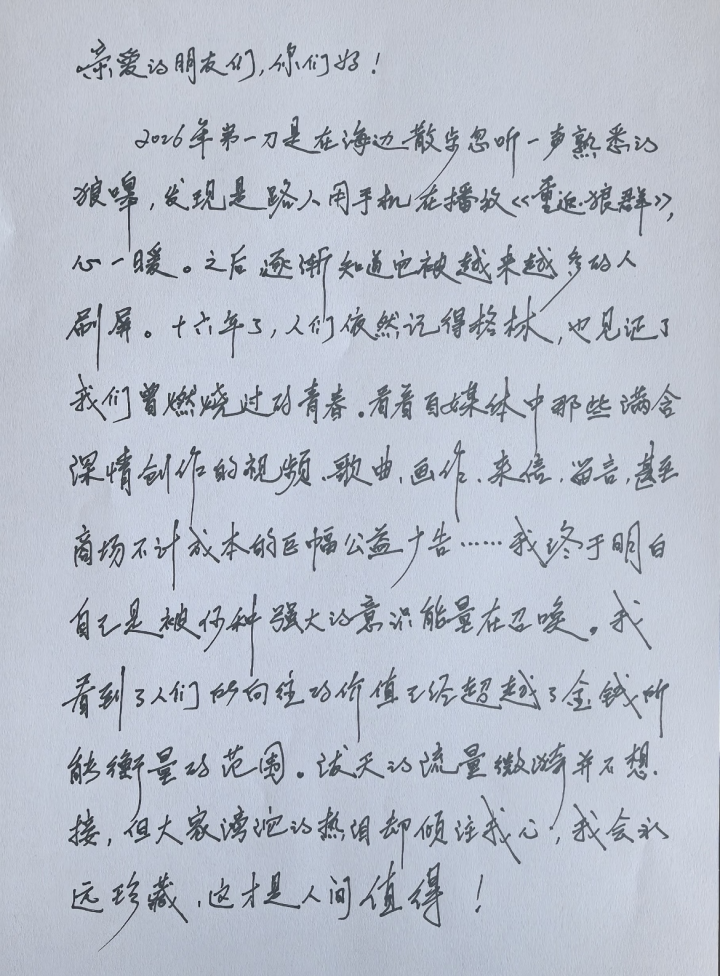 亲爱的朋友们,你们好!
2026年第一刀是在海边散步忽听一声熟悉的
狼嗥,发现是路人用手机在播放《重返·狼群》,
心一暖。之后逐渐知道也被越来越多的人
刷屏。十六年了,人们依然记得格林,也见证了
我们曾燃烧过的青春。看着自媒体中那些满含
深情创作的视频、歌曲、画作、来信、留言,甚至
商场不计成本的巨幅公益广告……我终于明白
自己是被何种强大的意识能量在召唤。我
看到了人们所向往的价值已经超越了金钱所
能衡量的范围。泼天的流量微漪并不想
接,但大家滂沱的热泪却倾注我心,我会永
远珍藏,这才是人间值得!